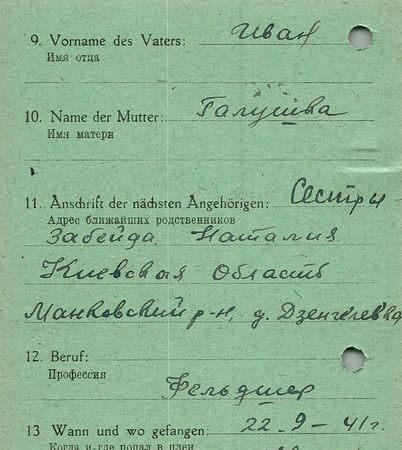 9. Vorname des Vaters: Иван
Имя отца
10. Name der Mutter: Галушка
Имя матери
11. Anschrift der nächsten Angehörigen: Сестры
Адрес ближайших родственников
Забейда Наталия
Киевская область
Манковский р-н, д. Дзенгелевка
12. Beruf:
Профессия
Фельдшер
13 Wann und wo gefangen: 22-9-41г.
Когда и где попал в плен